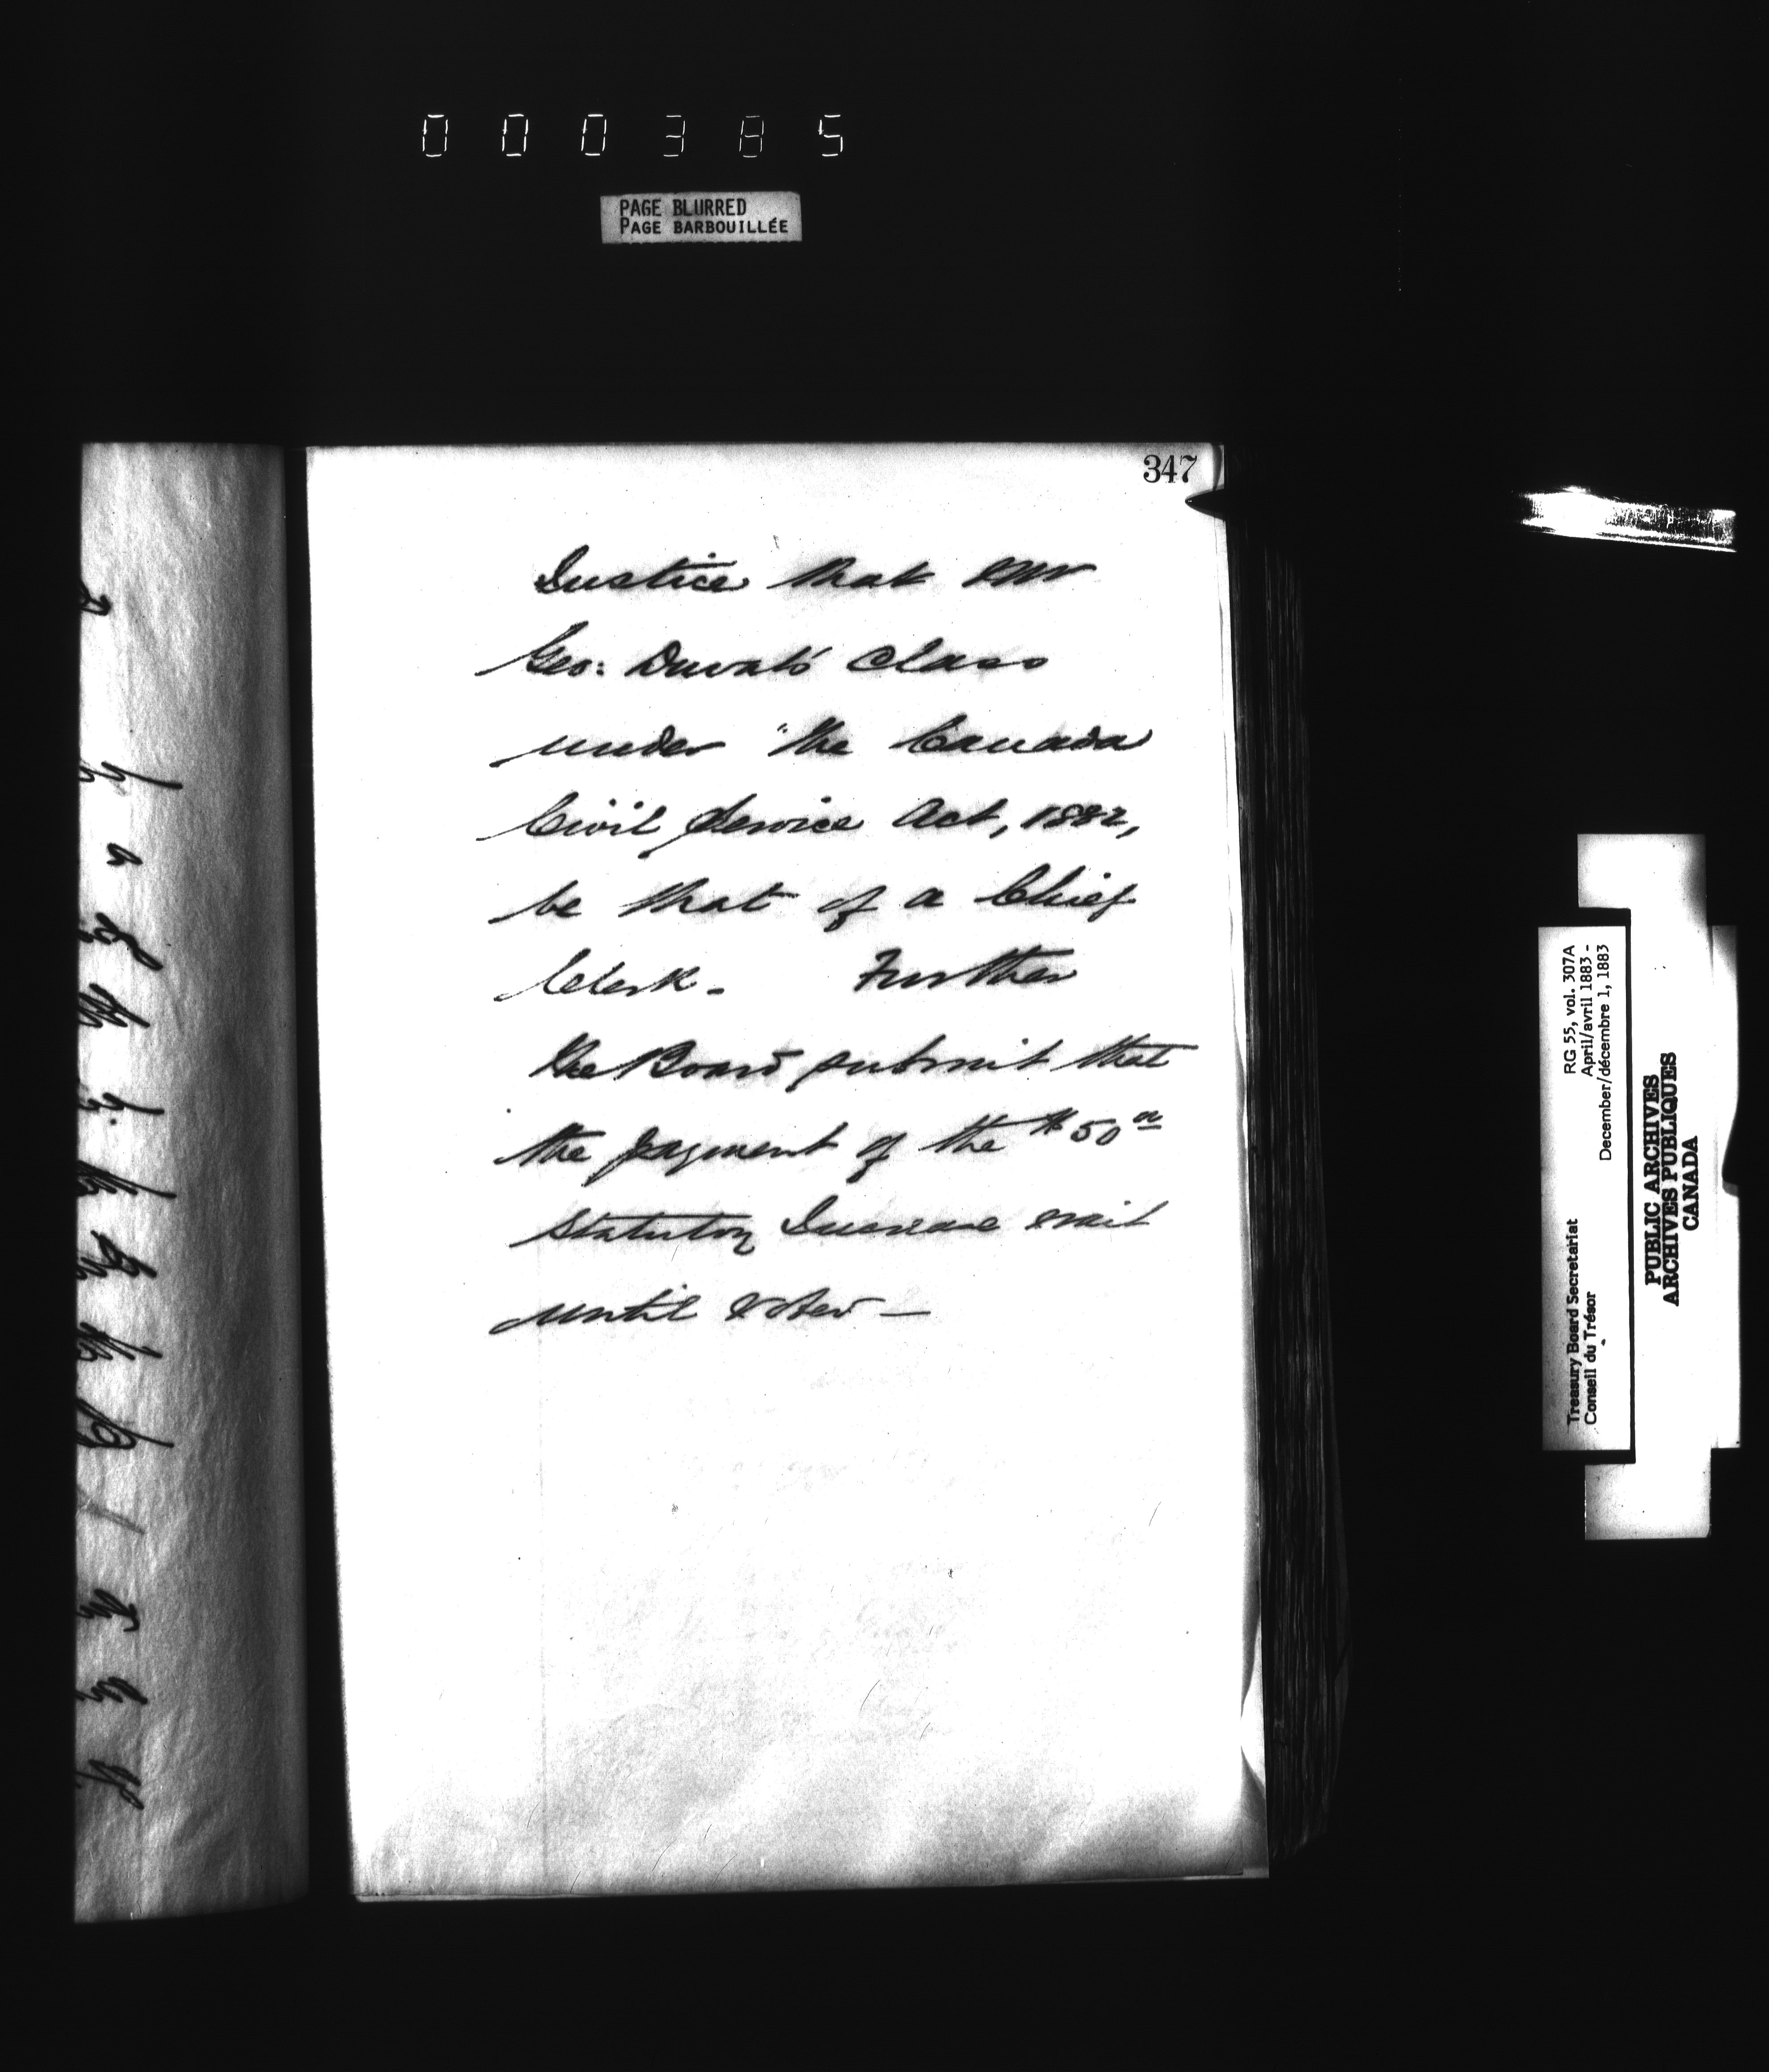 000385
PAGE BLURRED
PAGE BARBOUILLÉE
347
Justice that Mr
Geo: Duval's Class
under "the Canada
Civil Service Act, 1882,
be that of a Chief
Clerk. Further
the Board submit that
the payment of the $50
Statutory Increase wait
until voted —
RG 55, vol. 307A
April/avril 1883 -
December/décembre 1, 1883
Treasury Board Secretariat
Conseil du Trésor
PUBLIC ARCHIVES
ARCHIVES PUBLIQUES
CANADA